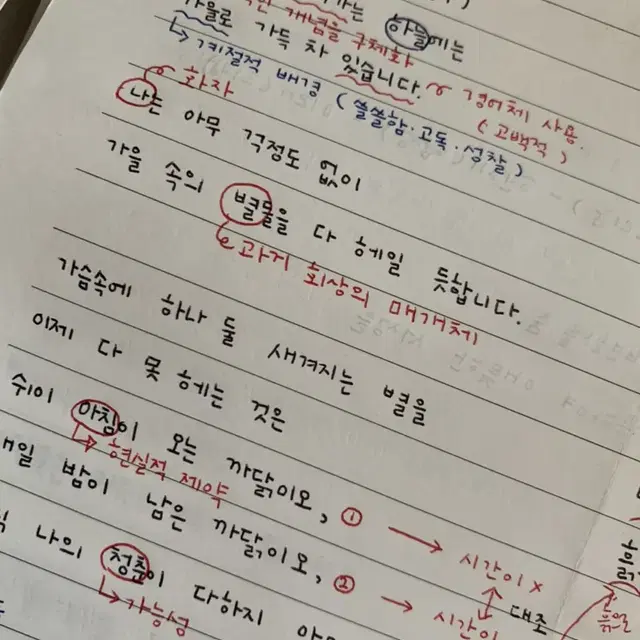 개념을 구체화
가는 하늘에는
가을로 가득 차 있습니다.
경어체 사용.
(고백적)
계절적 배경 (쓸쓸함·고독·성찰)
화자
나는 아무 걱정도 없이
가을 속의 별들을 다 헤일 듯합니다.
과거 회상의 매개체
가슴속에 하나 둘 새겨지는 별을
이제 다 못 헤는 것은
쉬이 아침이 오는 까닭이오, ①
현실적 제약
시간이 x
밤이 남은 까닭이오, ②
대조
시간이
나의 청춘이 다하지
가능성